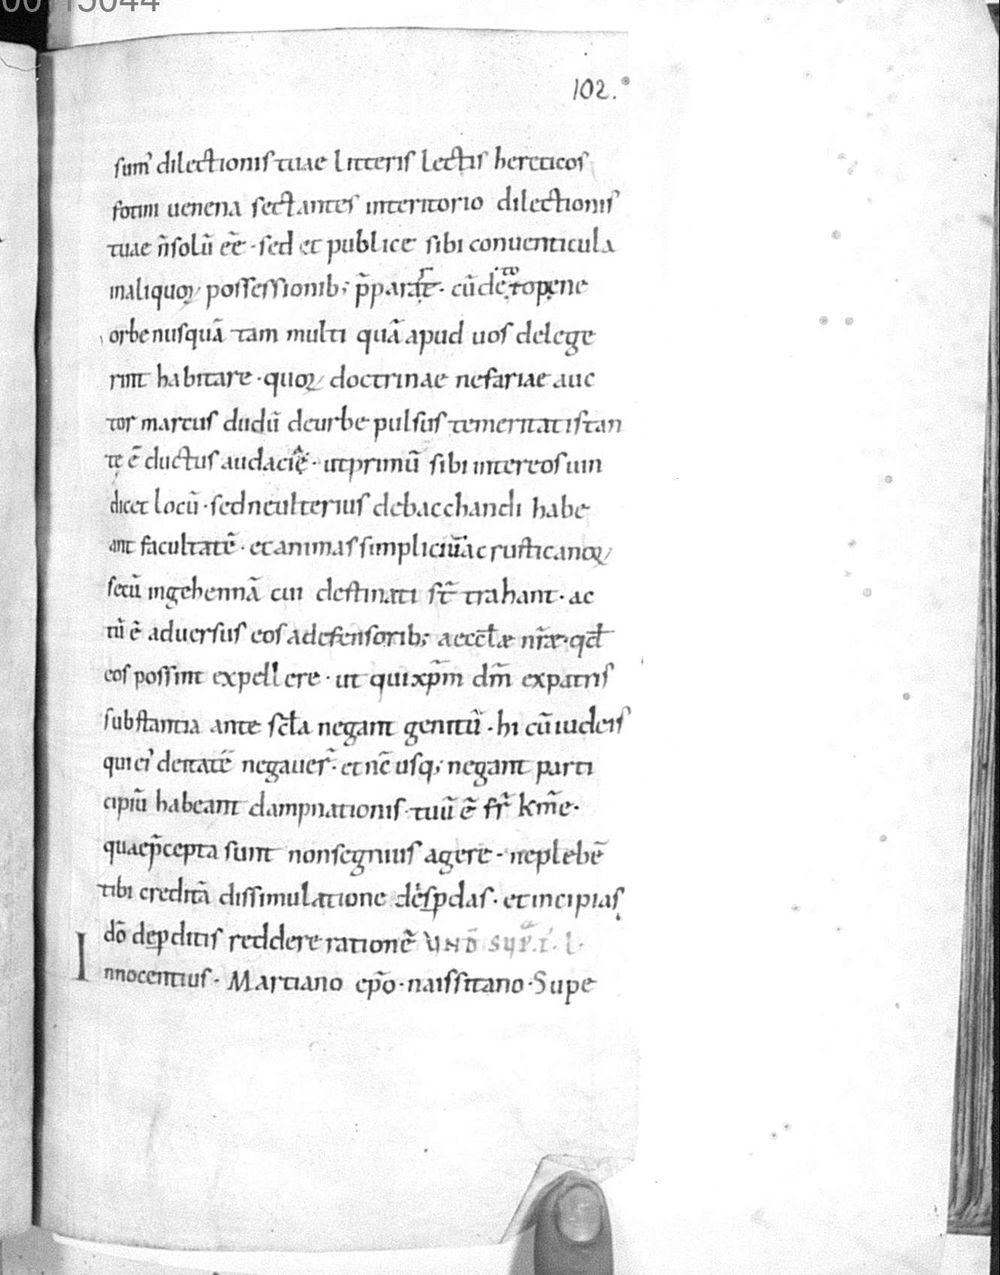 00015044
102.
sum̕ dilectionis tuae litteris lectis hereticos
fotini uenena sectantes interitorio dilectionis
tuae n̄ solū eē · sed et publice sibi conuenticula
inaliquoꝝ possessionib; p̄pararē · cū de toto pene
orbe nusquā tam multi quā apud uos delege
rint habitare · quoꝝ doctrinae nefariae auc
tor marcus dudū deurbe pulsus temeritatis tan
tę ē ductus audacię · ut primū sibi inter eos uin
dicet locū · sed neulterius debacchandi habe
ant facultatē · et animas simpliciū ac rusticanoꝝ
secū ingehennā cui destinati st̄ trahant · ac
tū ē aduersus eos adefensorib; aeccłæ nr̄æ · qđ
eos possint expellere · ut qui xp̄m dm̄ expatris
substantia ante scła negant genitū · hi cū iudeis
qui ei' deitatē negauer̄ · et nc̄ usq; negant parti
cipiū habeant dampnationis · tuū ē fr̄ km̄e ·
quae p̄cepta sunt non segnius agere · ne plebē
tibi creditā dissimulatione desꝑdas · et incipias
dō deꝑditis reddere rationē
Innocentius · Martiano ep̄o · naissitano · Supe